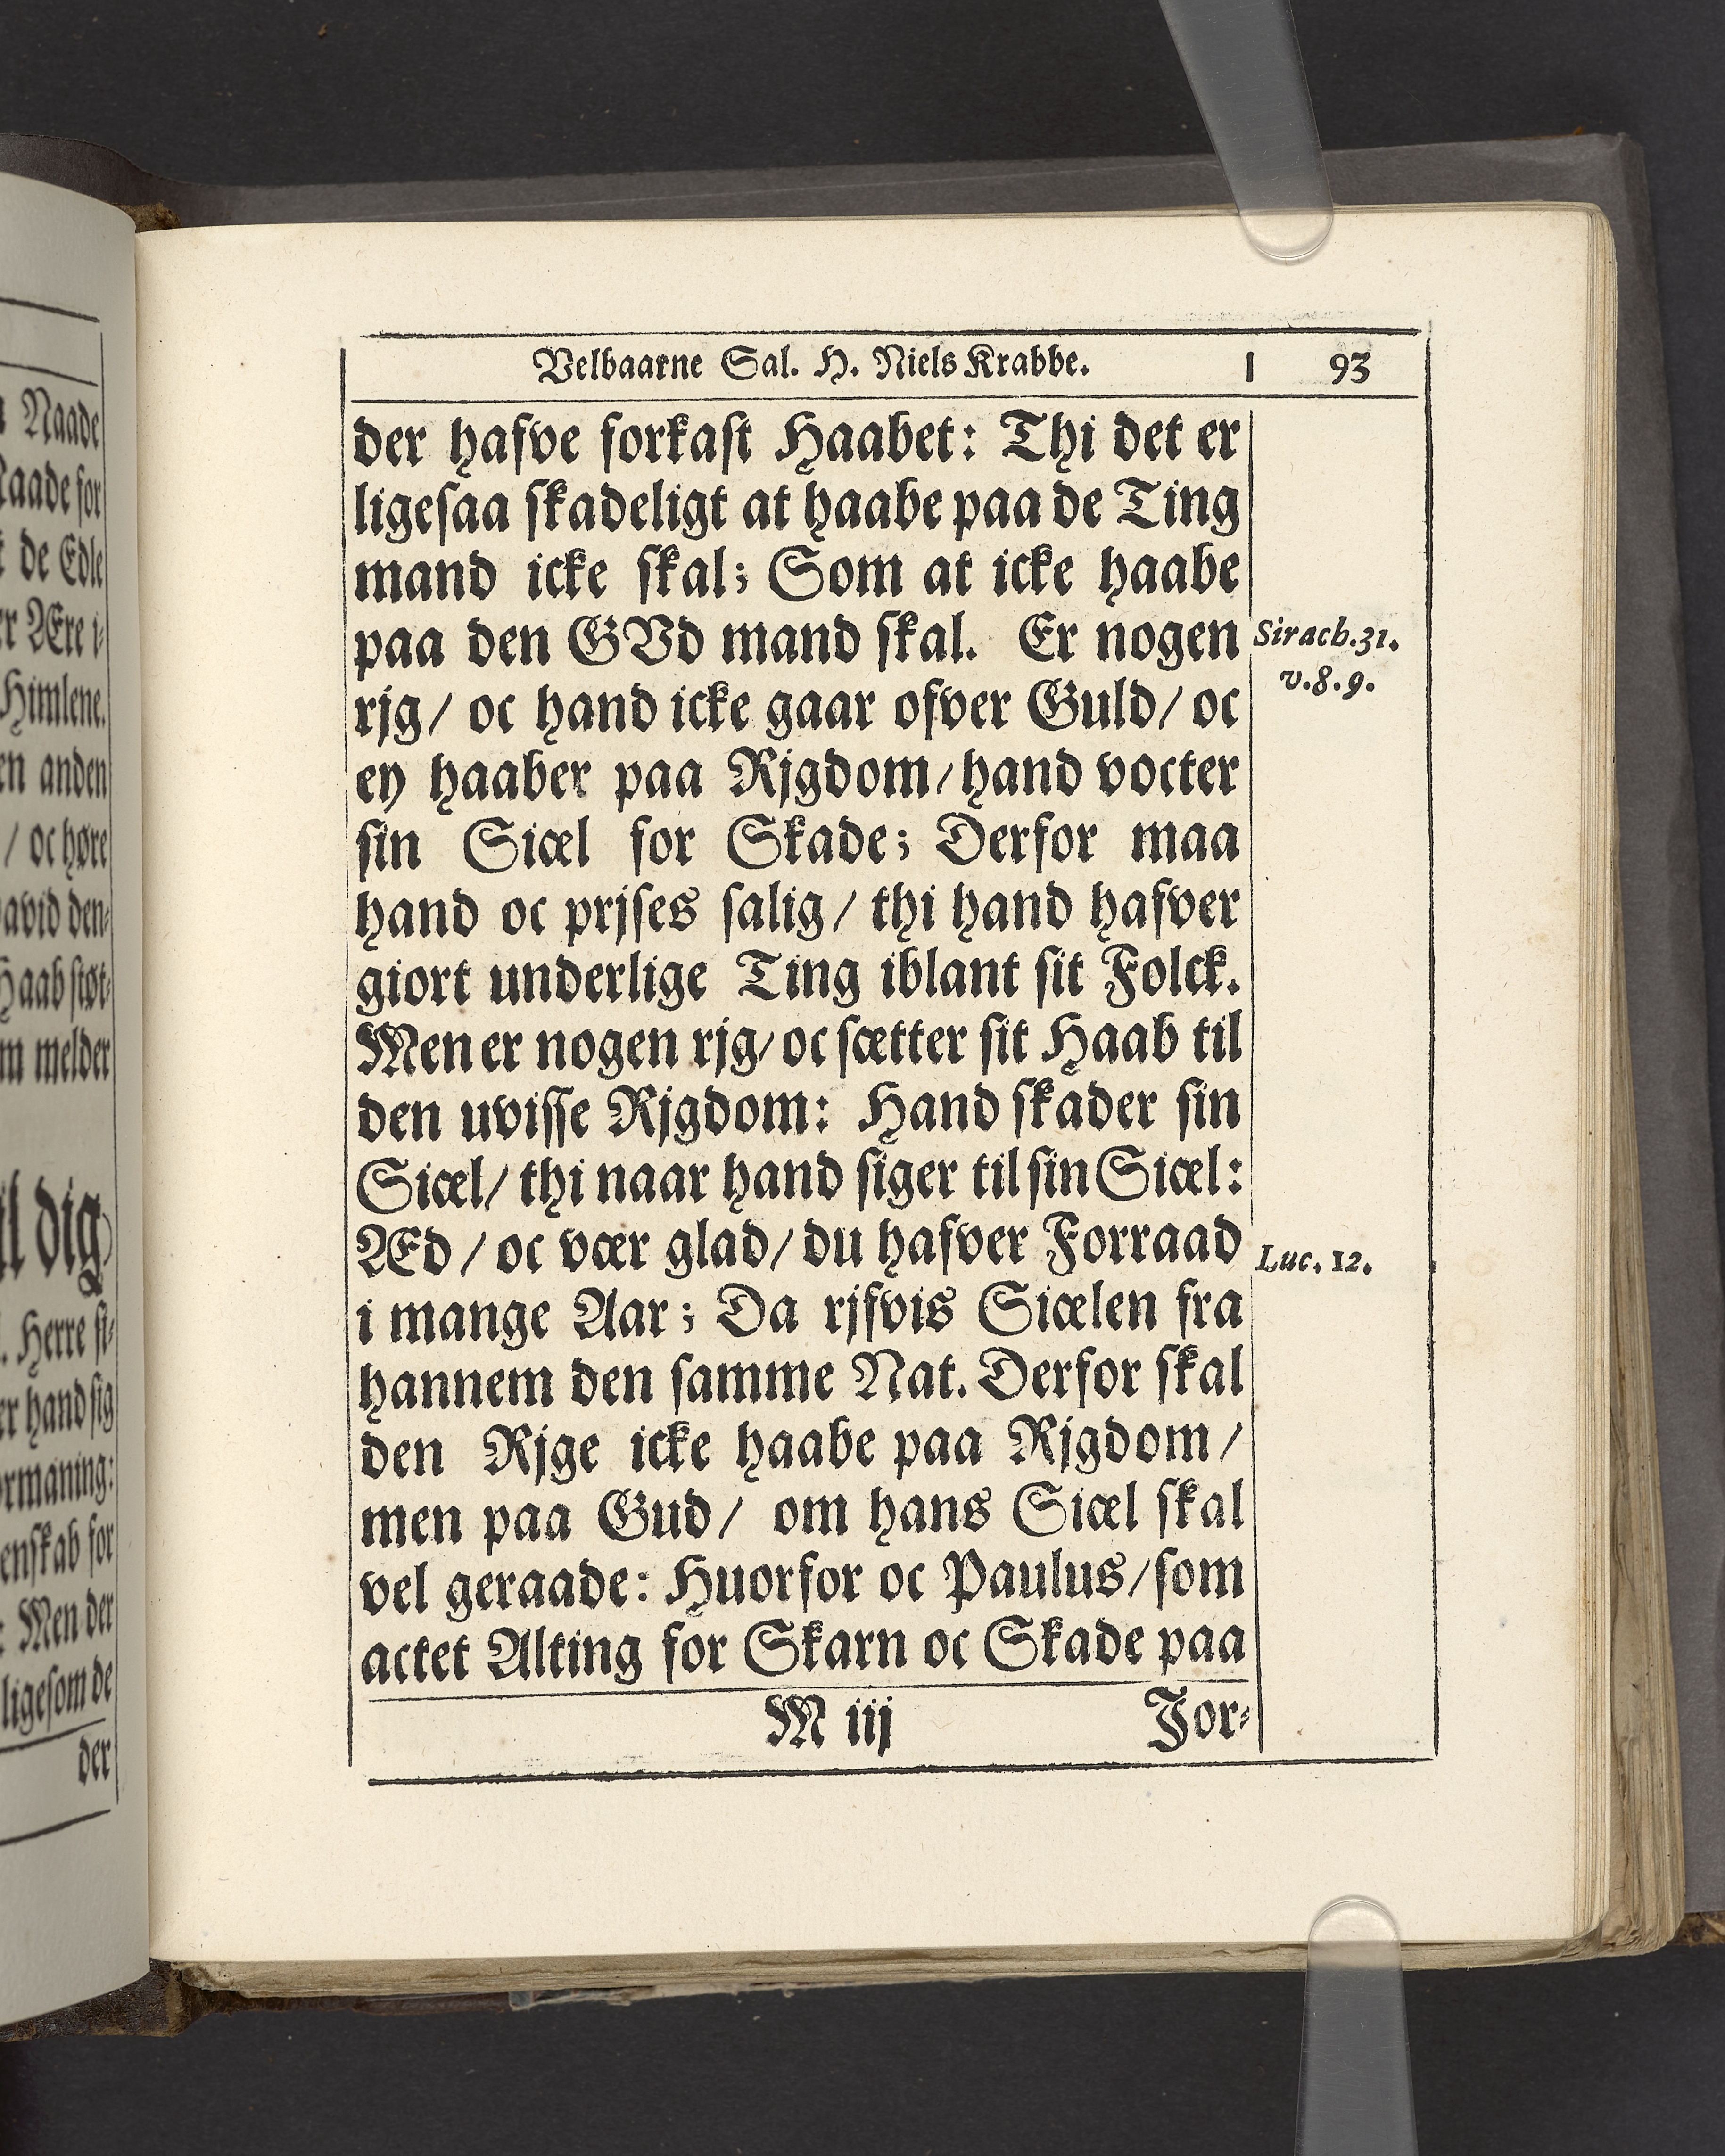 Naade
Naade for
de Edle
Ære i-
Himlene.
en anden
/ oc høre
David den-
Haab støt-
melder
til dig
Herre si-
er hand sig
ormaning:
enskab for
Men der
ligesom de
der
Velbaarne Sal. H. Niels Krabbe. 93
der hafve forkast Haabet: Thi det er
ligesaa skadeligt at haabe paa de Ting
mand icke skal; Som at icke haabe
paa den GVd mand skal. Er nogen
Sirach.31.
v.8.9.
rjg/ oc hand icke gaar ofver Guld/ oc
ey haaber paa Rjgdom/ hand vocter
sin Siæl for Skade; Derfor maa
hand oc prjses salig/ thi hand hafver
giort underlige Ting iblant sit Folck.
Men er nogen rjg/ oc sætter sit Haab til
den uvisse Rjgdom: Hand skader sin
Siæl/ thi naar hand siger til sin Siæl:
Æd/ oc vær glad/ du hafver Forraad
Luc. 12.
i mange Aar; Da rjfvis Siælen fra
hannem den samme Nat. Derfor skal
den Rjge icke haabe paa Rjgdom/
men paa Gud/ om hans Siæl skal
vel geraade: Huorfor oc Paulus/ som
actet Alting for Skarn oc Skade paa
M iij Jor-